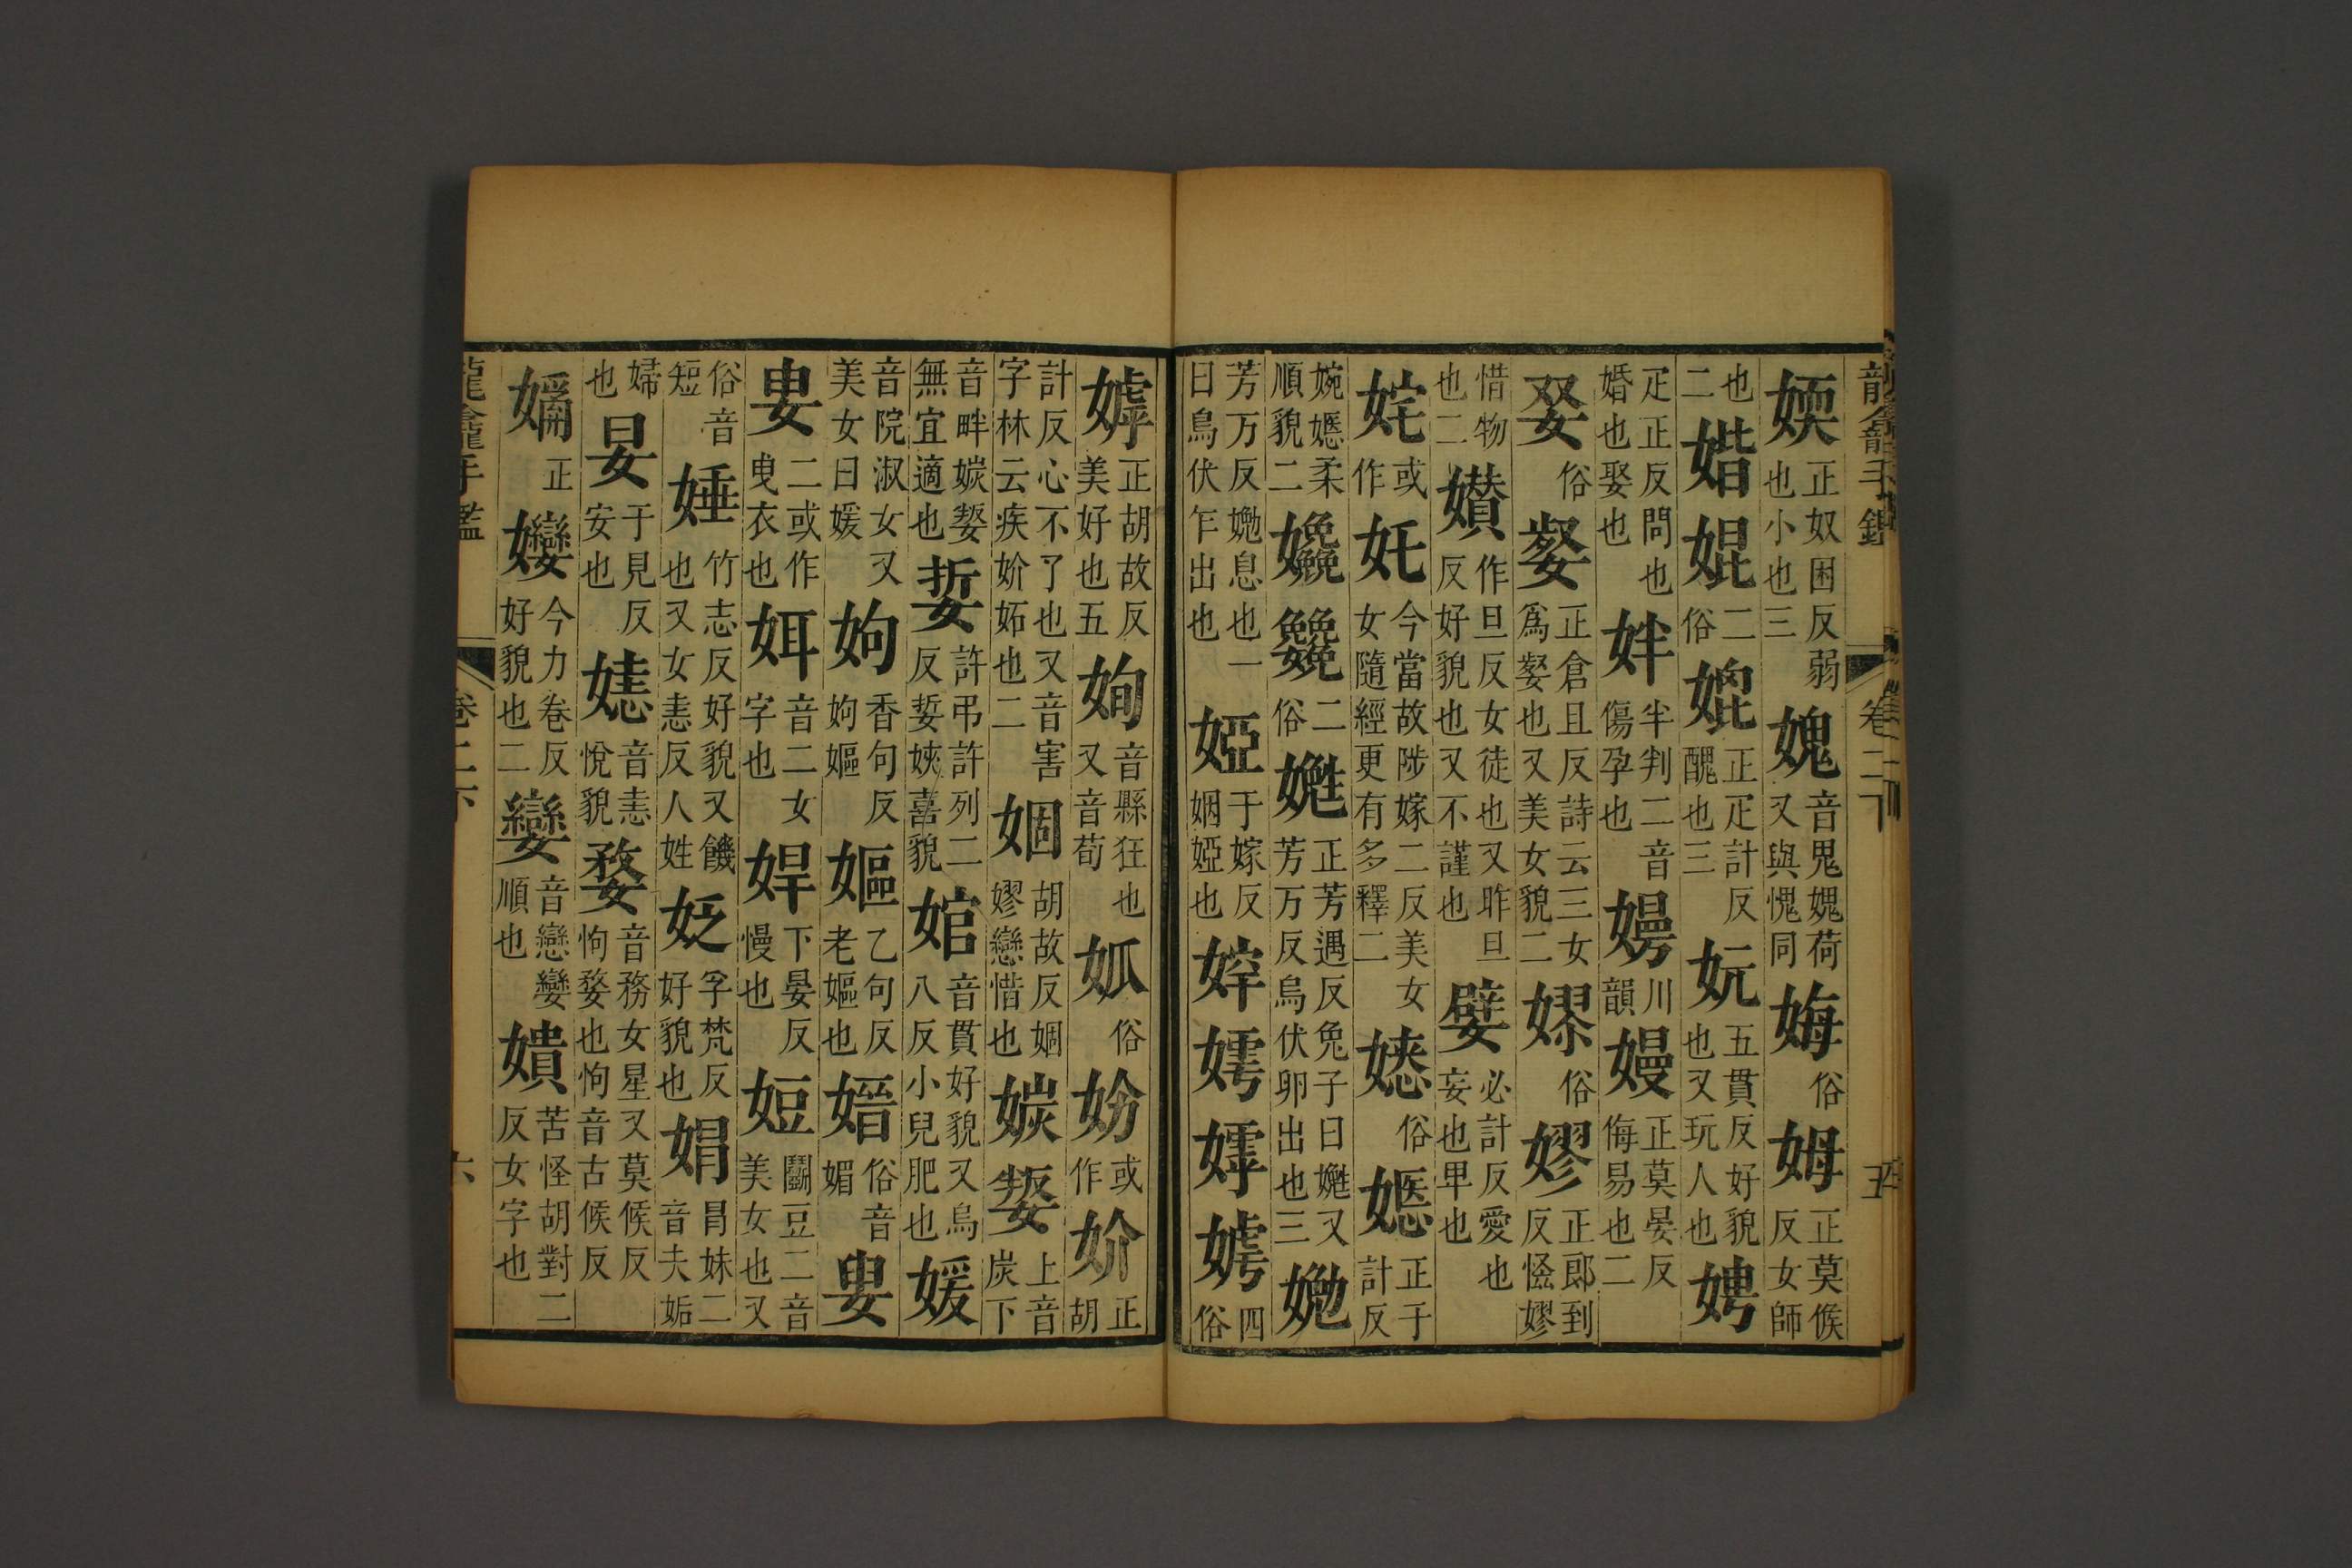 媆正奴困反弱也小也三媿音䰟媿荷又與愧同㛅俗姆正莫候反女師
也二㛃婫二俗媲正疋計反醜也三妧五貫反好貌也又玩人也娉
疋正反問也婚也娶也姅半判二音傷孕也川韻嫚正莫晏反侮易也二
俗㛑正倉且反詩云三女爲㛑也又美女貌二俗嫪正郎到反恡嫪
惜物也二㜺作旦反女徒也又昨旦反好貌也又不謹也嬖必計反愛也妾也卑也
姹或作奼今當故陟嫁二反美女女隨經更有多釋二俗嫕正于計反
婉嫕柔順貌二二俗正芳遇反兔子曰嬎又芳万反鳥伏卵出也三
芳万反嬎息也一曰鳥伏乍出也婭于嫁反姻婭也四俗
嫭正胡故反美好也五姰音縣狂也又音荀俗或作妎正胡
計反心不了也又音害字林云疾妎妬也二婟胡故反婟嫪戀惜也上音炭下
音畔無宜適也許弔許列二反喜貌婠音貫好貌又烏八反小兒肥也媛
音院淑女又美女曰媛姁香句反姁嫗嫗乙句反老嫗也俗音媚
二或作曳衣也姓音二女字也下晏反慢也鬭豆二音美女也又
俗音短娷竹志反好貌又饑也又女恚反人姓姂孚梵反好貌也媢冒妹二音夫妬
婦也㫃于見反安也音恚悅貌婺音務女星又莫候反怐婺也怐音古候反
正今力卷反好貌也二孌音戀孌順也嬇苦怪胡對二反女字也